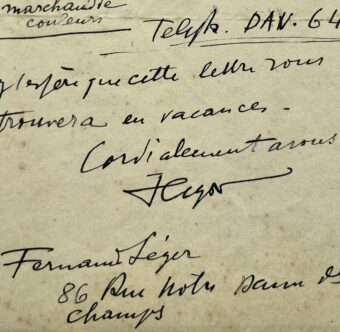 marchandise
couleurs
Teleph. DAN. 64
j'espère que cette lettre vous
trouvera en vacances -
Cordialement a vous
FLeger
Fernand Léger
86 Rue Notre Dame des
champs